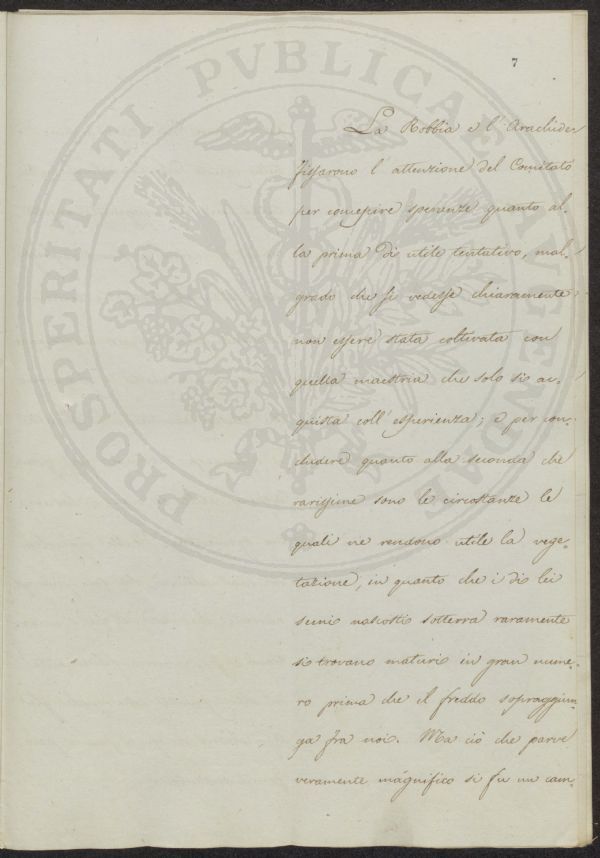 7
La Robbia e l'Arachide
fissarono l'attenzione del Comitato
per concepire speranze quanto al-
la prima di utile tentativo, mal-
grado che si vedesse chiaramente
non essere stata coltivata con
quella maestria che solo si ac-
quista coll'esperienza; e per con-
cludere quanto alla seconda che
rarissime sono le circostanze le
quali ne rendono utile la vege-
tazione, in quanto che i di lei
semi nascosti sotterra raramente
si trovano maturi in gran nume-
ro prima che il freddo sopraggiun-
ga fra noi. Ma ciò che parve
veramente magnifico si fu un cam-
PROSPERITATI PVBLICAE AVGENDAE